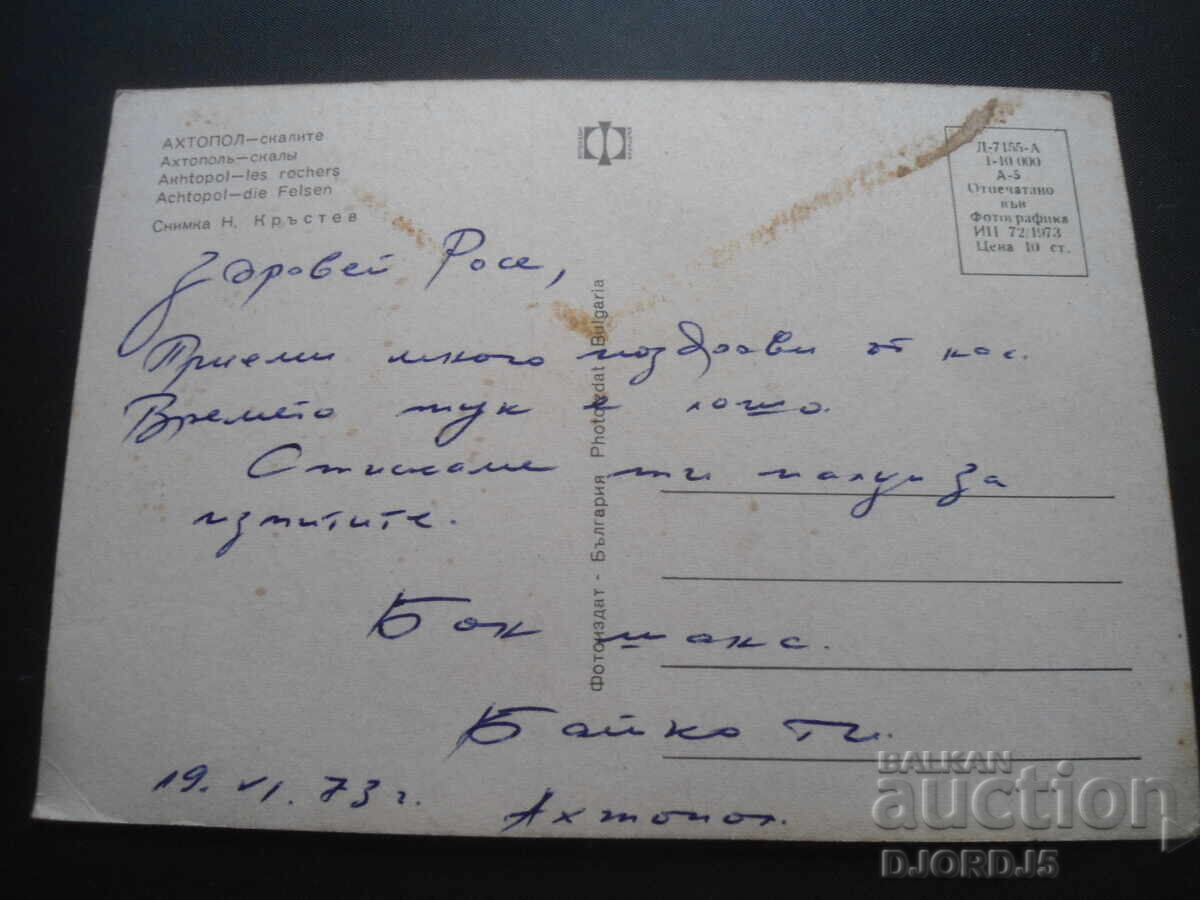 АХТОПОЛ—скалите
Ахтополь—скалы
Akhtopol—les rochers
Achtopol—die Felsen
Снимка Н. Кръстев
Д-7155-А
1-10 000
А-5
Отпечатано
във
Фотографика
ИП 72/1973
Цена 10 ст.
Здравей Росе,
Приеми много поздрави от нас.
Времето тук е лошо.
Стискаме ти палци за
изпитите.
Бон шанс.
Байко Ти.
19. VI. 73 г.
Ахтопол.
Фотоиздат - България Photoizdat Bulgaria
BALKAN
auction
DJORDJ5